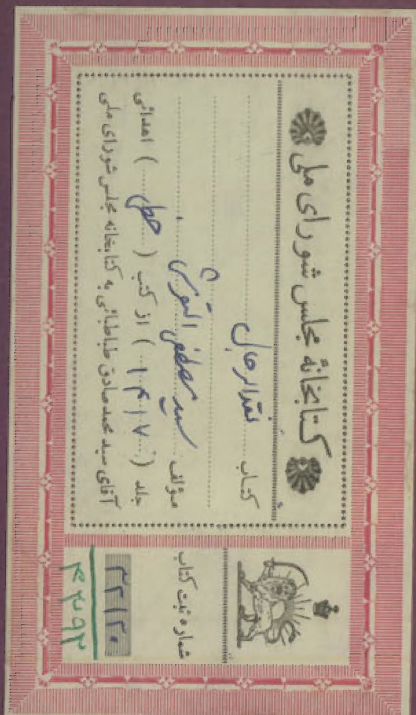 کتابخانهٔ مجلس شورای ملی
کتاب نقد الرجال
مؤلف سید مصطفی التفرشی
جلد (۱۴۱۷) از کتب (خطی) اهدائی
آقای سید محمد صادق طباطبائی به کتابخانه مجلس شورای ملی
شماره ثبت کتاب